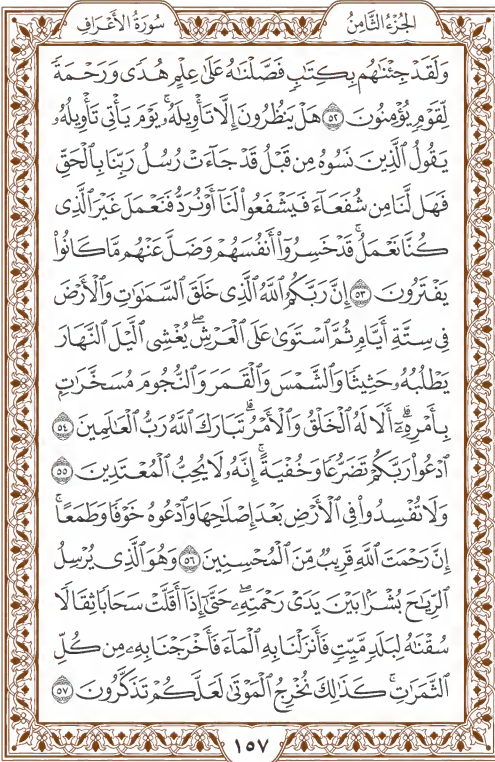 سُورَةُ الأَعْرَافِ
الجُزْءُ الثَّامِنُ
وَلَقَدْ جِئْنَٰهُم بِكِتَٰبٍ فَصَّلْنَٰهُ عَلَىٰ عِلْمٍ هُدًى وَرَحْمَةً
لِّقَوْمٍ يُؤْمِنُونَ ٥٢ هَلْ يَنظُرُونَ إِلَّا تَأْوِيلَهُۥ ۚ يَوْمَ يَأْتِى تَأْوِيلُهُۥ
يَقُولُ ٱلَّذِينَ نَسُوهُ مِن قَبْلُ قَدْ جَآءَتْ رُسُلُ رَبِّنَا بِٱلْحَقِّ
فَهَل لَّنَا مِن شُفَعَآءَ فَيَشْفَعُوا۟ لَنَآ أَوْ نُرَدُّ فَنَعْمَلَ غَيْرَ ٱلَّذِى
كُنَّا نَعْمَلُ ۚ قَدْ خَسِرُوٓا۟ أَنفُسَهُمْ وَضَلَّ عَنْهُم مَّا كَانُوا۟
يَفْتَرُونَ ٥٣ إِنَّ رَبَّكُمُ ٱللَّهُ ٱلَّذِى خَلَقَ ٱلسَّمَٰوَٰتِ وَٱلْأَرْضَ
فِى سِتَّةِ أَيَّامٍ ثُمَّ ٱسْتَوَىٰ عَلَى ٱلْعَرْشِ ۖ يُغْشِى ٱلَّيْلَ ٱلنَّهَارَ
يَطْلُبُهُۥ حَثِيثًا وَٱلشَّمْسَ وَٱلْقَمَرَ وَٱلنُّجُومَ مُسَخَّرَٰتٍۭ
بِأَمْرِهِۦٓ ۗ أَلَا لَهُ ٱلْخَلْقُ وَٱلْأَمْرُ ۗ تَبَارَكَ ٱللَّهُ رَبُّ ٱلْعَٰلَمِينَ ٥٤
ٱدْعُوا۟ رَبَّكُمْ تَضَرُّعًا وَخُفْيَةً ۚ إِنَّهُۥ لَا يُحِبُّ ٱلْمُعْتَدِينَ ٥٥
وَلَا تُفْسِدُوا۟ فِى ٱلْأَرْضِ بَعْدَ إِصْلَٰحِهَا وَٱدْعُوهُ خَوْفًا وَطَمَعًا ۚ
إِنَّ رَحْمَتَ ٱللَّهِ قَرِيبٌ مِّنَ ٱلْمُحْسِنِينَ ٥٦ وَهُوَ ٱلَّذِى يُرْسِلُ
ٱلرِّيَٰحَ بُشْرًۢا بَيْنَ يَدَىْ رَحْمَتِهِۦ ۖ حَتَّىٰٓ إِذَآ أَقَلَّتْ سَحَابًا ثِقَالًا
سُقْنَٰهُ لِبَلَدٍ مَّيِّتٍ فَأَنزَلْنَا بِهِ ٱلْمَآءَ فَأَخْرَجْنَا بِهِۦ مِن كُلِّ
ٱلثَّمَرَٰتِ ۚ كَذَٰلِكَ نُخْرِجُ ٱلْمَوْتَىٰ لَعَلَّكُمْ تَذَكَّرُونَ ٥٧
١٥٧